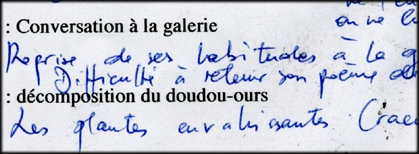 : Conversation à la galerie
Reprise de ses habitudes à la g
Difficulté à retenir son poème de
: décomposition du doudou-ours
Les plantes envahissantes (